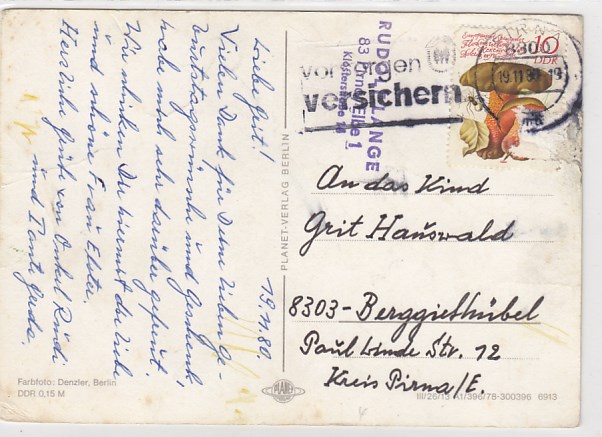 19.11.80.
Liebe Grit!
Vielen Dank für Deine lieben Ge-
burtstagswünsche und Geschenk,
habe mich sehr darüber gefreut.
Wir schicken Dir hiermit die liebe
und schöne Frau Elster.
Herzliche Grüße von Onkel Rudi
und Tante Gerda.
Farbfoto: Denzler, Berlin
DDR 0,15 M
PLANET-VERLAG BERLIN
PLANET
RUDOLF LANGE
83 Pirna-Elbe 1
Klosterstraße
vor
versichern
10
DDR
8300
19.11.80-19
An das Kind
Grit Hauswald
8303-Berggießhübel
Paul Linde Str. 12
Kreis Pirna/E.
III/26/13 A1/396/78-300396 6913